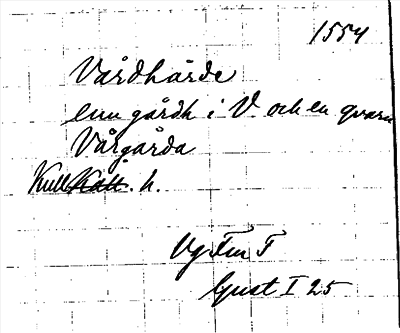 1554
Vårdhärde
enn gårdh i V. och en qvarn
Vårgårda
Kull Katt. h.
Vg Fm T
Gust I 25